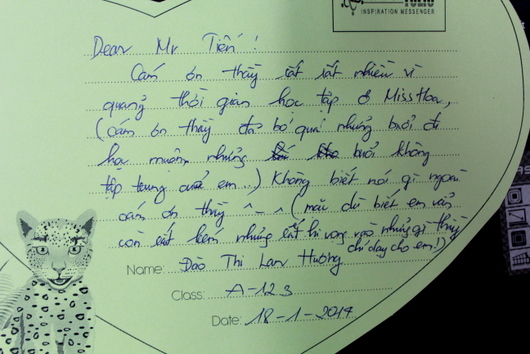 TOEIC
INSPIRATION MESSENGER
Dear Mr Tiến!
Cám ơn thầy rất rất nhiều vì
quang thời gian học tập ở Miss Hoa,
(cám ơn thầy đã bỏ quá những buổi đi
học muộn, những buổi không
tập trung của em...) Không biết nói gì ngoài
cám ơn thầy ^_^ (mặc dù biết em vẫn
còn rất kém nhưng rất hi vọng vào những gì thầy
chỉ dạy cho em!)
Name: Đào Thị Lan Hương
Class: A-123
Date: 18-1-2014